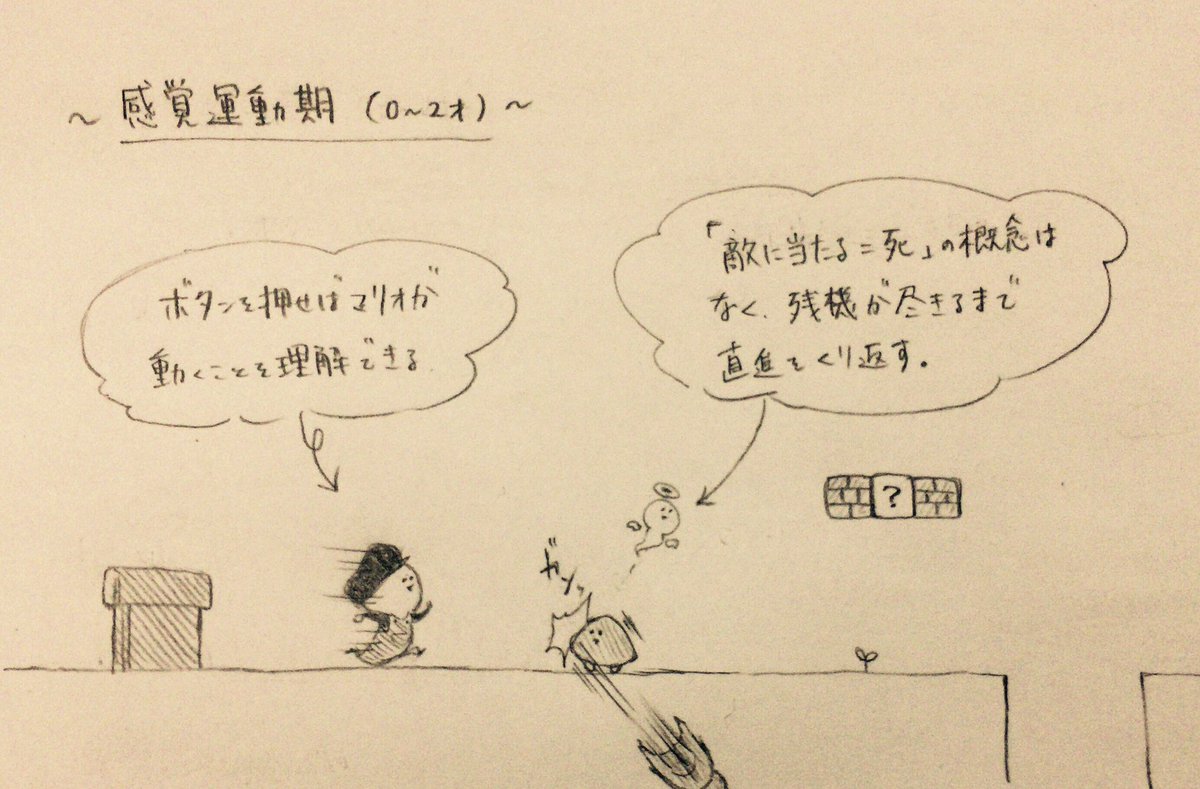 ～ 感覚運動期 (0～2才) ～
ボタンを押せばマリオが
動くことを理解できる.
「敵に当たる=死」の概念は
なく、残機が尽きるまで
直進をくり返す。
?
ガッ